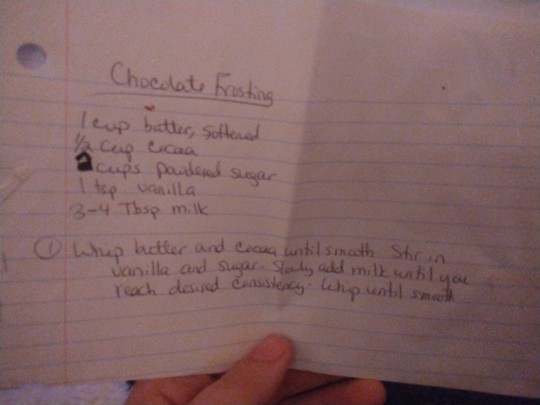 Chocolate Frosting
1 cup butter, softened
1/2 cup cocoa
2 cups powdered sugar
1 tsp vanilla
3-4 Tbsp milk
① Whip butter and cocoa until smooth. Stir in
vanilla and sugar. Slowly add milk until you
reach desired consistency. Whip until smooth